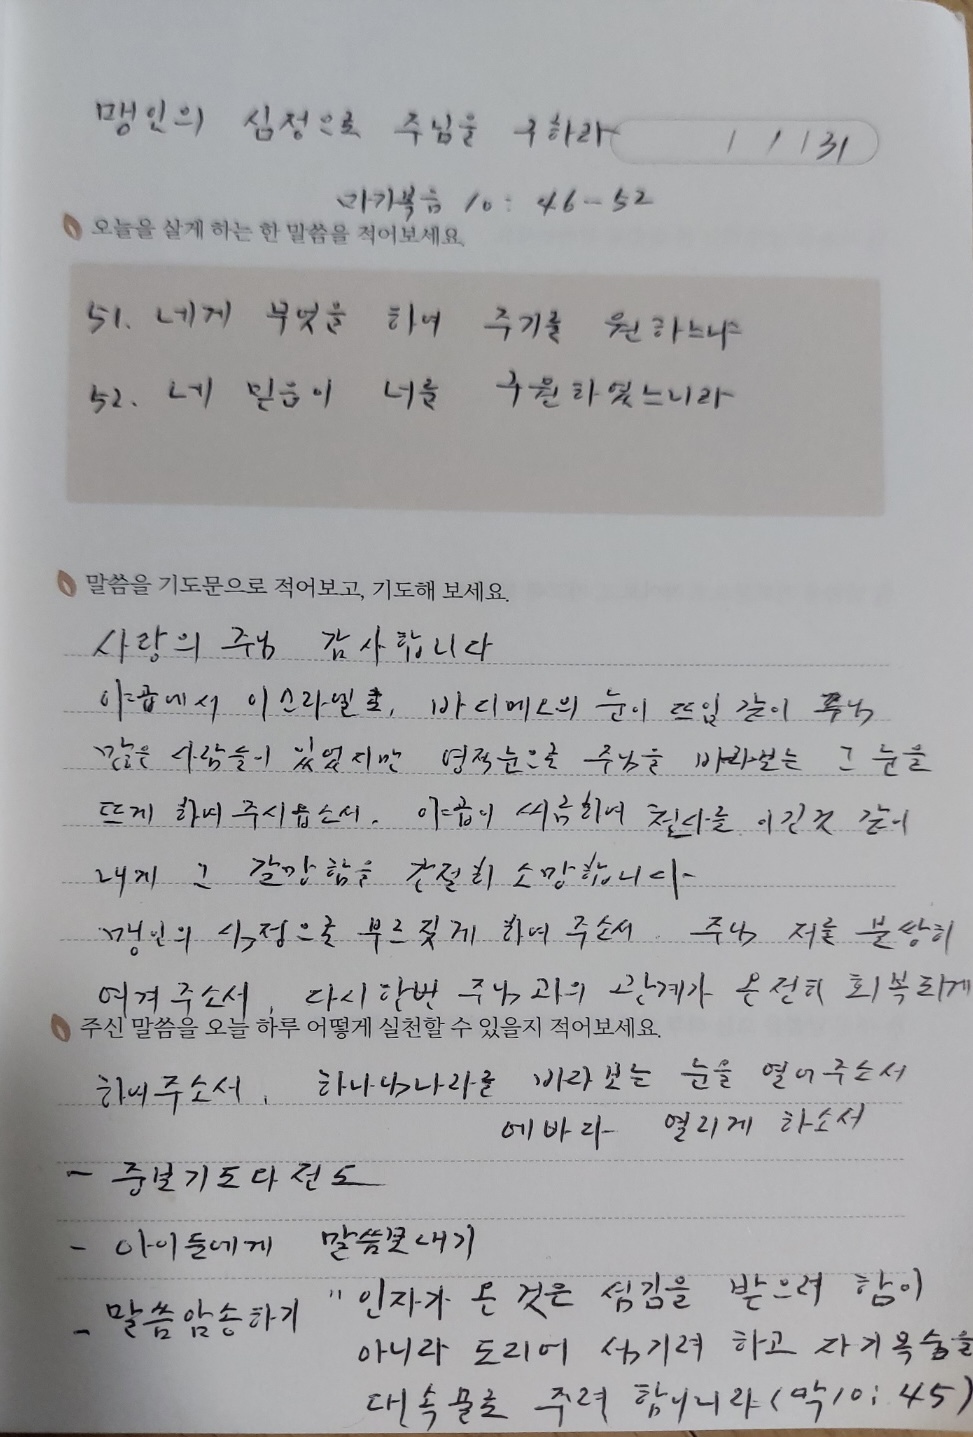 맹인의 심정으로 주님을 구하라
1 / 1 31
마가복음 10: 46-52
오늘을 살게 하는 한 말씀을 적어보세요.
51. 네게 무엇을 하여 주기를 원하느냐
52. 네 믿음이 너를 구원하였느니라
말씀을 기도문으로 적어보고, 기도해 보세요.
사랑의 주님 감사합니다
야곱에서 이스라엘로, 바디메오의 눈이 뜨임 같이
많은 사람들이 있었지만 영적눈으로 주님을 바라보는 그 눈을
뜨게 하여 주시옵소서. 야곱이 씨름하여 천사를 이긴것 같이
내게 그 갈망함을 간절히 소망합니다
맹인의 심정으로 부르짖게 하여 주소서. 주님 저를 불쌍히
여겨 주소서, 다시한번 주님과의 관계가 온전히 회복되게
주신 말씀을 오늘 하루 어떻게 실천할 수 있을지 적어보세요.
하여주소서, 하나님나라를 바라보는 눈을 열어주소서
에바다 열리게 하소서
- 중보기도다전도
- 아이들에게 말씀보내기
- 말씀암송하기 "인자가 온 것은 섬김을 받으려 함이
아니라 도리어 섬기려 하고 자기목숨을
대속물로 주려 함이니라 (막10: 45)